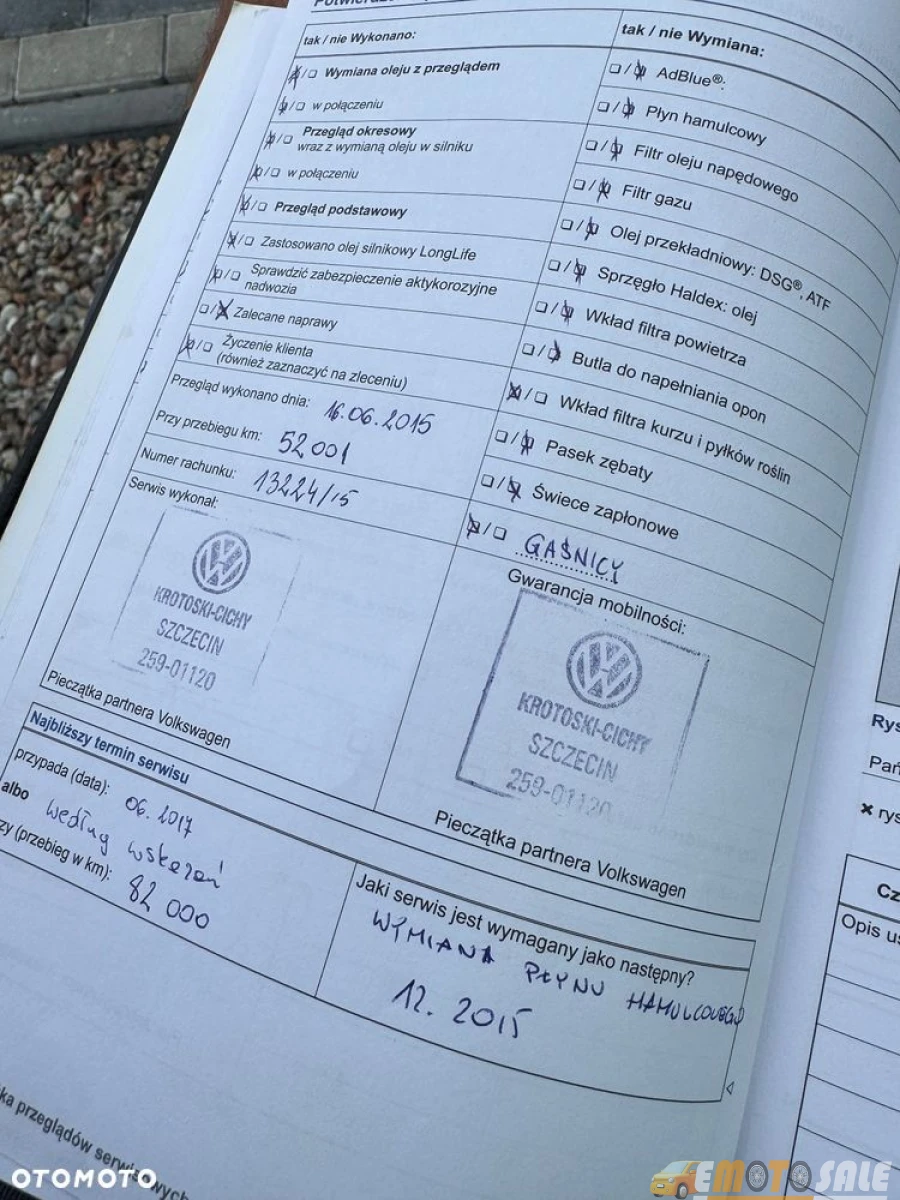 tak / nie Wykonano:
Wymiana oleju z przeglądem
w połączeniu
Przegląd okresowy
wraz z wymianą oleju w silniku
w połączeniu
Przegląd podstawowy
Zastosowano olej silnikowy LongLife
Sprawdzić zabezpieczenie aktykorozyjne
nadwozia
Zalecane naprawy
Życzenie klienta
(również zaznaczyć na zleceniu)
Przegląd wykonano dnia: 16.06.2015
Przy przebiegu km: 52 001
Numer rachunku: 13224/15
Serwis wykonał:
KROTOSKI-CICHY
SZCZECIN
259-01120
Pieczątka partnera Volkswagen
tak / nie Wymiana:
AdBlue®:
Płyn hamulcowy
Filtr oleju napędowego
Filtr gazu
Olej przekładniowy: DSG®, ATF
Sprzęgło Haldex: olej
Wkład filtra powietrza
Butla do napełniania opon
Wkład filtra kurzu i pyłków roślin
Pasek zębaty
Świece zapłonowe
GAŚNICY
Gwarancja mobilności:
KROTOSKI-CICHY
SZCZECIN
259-01120
Pieczątka partnera Volkswagen
Najbliższy termin serwisu
przypada (data): 06.2017
albo według wskazań
(przebieg w km): 82 000
Jaki serwis jest wymagany jako następny?
WYMIANA PŁYNU HAMULCOWEGO
12. 2015
przeglądów serwisowych
Rys
Pań
rys
Cz
Opis us
OTOMOTO
EMOTOSALE